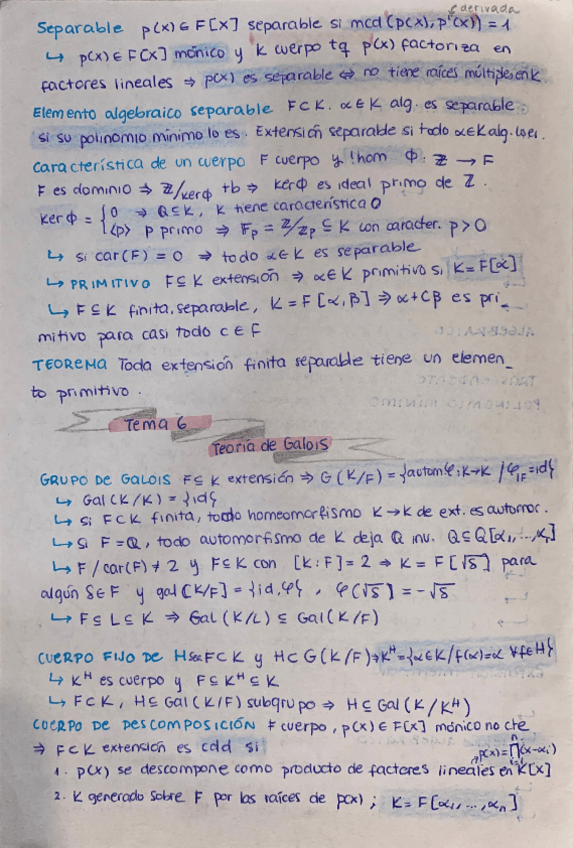 derivada
Separable p(x) ∈ F[X] separable si mcd(p(x), p'(x)) = 1
↳ p(x) ∈ F[X] mónico y K cuerpo tq p(x) factoriza en
factores lineales ⇒ p(x) es separable ⇔ no tiene raíces múltiples en K
Elemento algebraico separable F⊂K. α∈K alg. es separable
si su polinomio mínimo lo es. Extensión separable si todo α∈K alg. lo es.
Característica de un cuerpo F cuerpo y !hom Φ: ℤ → F
F es dominio ⇒ ℤ/kerΦ tb ⇒ kerΦ es ideal primo de ℤ.
KerΦ = { 0 ⇒ ℚ⊆K, K tiene característica 0
⟨p⟩ p primo ⇒ 𝔽p = ℤ/ℤp ⊆ K con caracter. p>0
↳ si car(F) = 0 ⇒ todo α∈K es separable
↳ PRIMITIVO F⊆K extensión ⇒ α∈K primitivo si K=F[α]
↳ F⊆K finita, separable, K = F[α,β] ⇒ α+cβ es pri_
mitivo para casi todo c∈F
TEOREMA Toda extensión finita separable tiene un elemen_
to primitivo.
Tema 6
Teoría de Galois
GRUPO DE GALOIS F⊆K extensión ⇒ G(K/F) = {autom φ: K→K / φ|F = id}
↳ Gal(K/K) = {id}
↳ Si F⊂K finita, todo homeomorfismo K→K de ext. es automor.
↳ Si F=ℚ, todo automorfismo de K deja ℚ inv. ℚ⊆ℚ[α1,...,αr]
↳ F/car(F)≠2 y F⊆K con [K:F]=2 ⇒ K=F[√δ] para
algún δ∈F y gal[K/F] = {id,φ}, φ(√δ)=-√δ
↳ F⊆L⊆K ⇒ Gal(K/L) ⊆ Gal(K/F)
CUERPO FIJO DE H sea F⊂K y H⊂G(K/F)⇒K^H={α∈K/f(α)=α ∀f∈H}
↳ K^H es cuerpo y F⊆K^H⊆K
↳ F⊂K, H⊆Gal(K/F) subgrupo ⇒ H⊆Gal(K/K^H)
CUERPO DE DESCOMPOSICIÓN F cuerpo, p(x)∈F[x] mónico no cte
⇒ F⊂K extensión es cdd si
p(x)=∏ⁿᵢ₌₁(x-αi)
1. p(x) se descompone como producto de factores lineales en K[x]
2. K generado sobre F por las raíces de p(x); K=F[α1,...,αn]